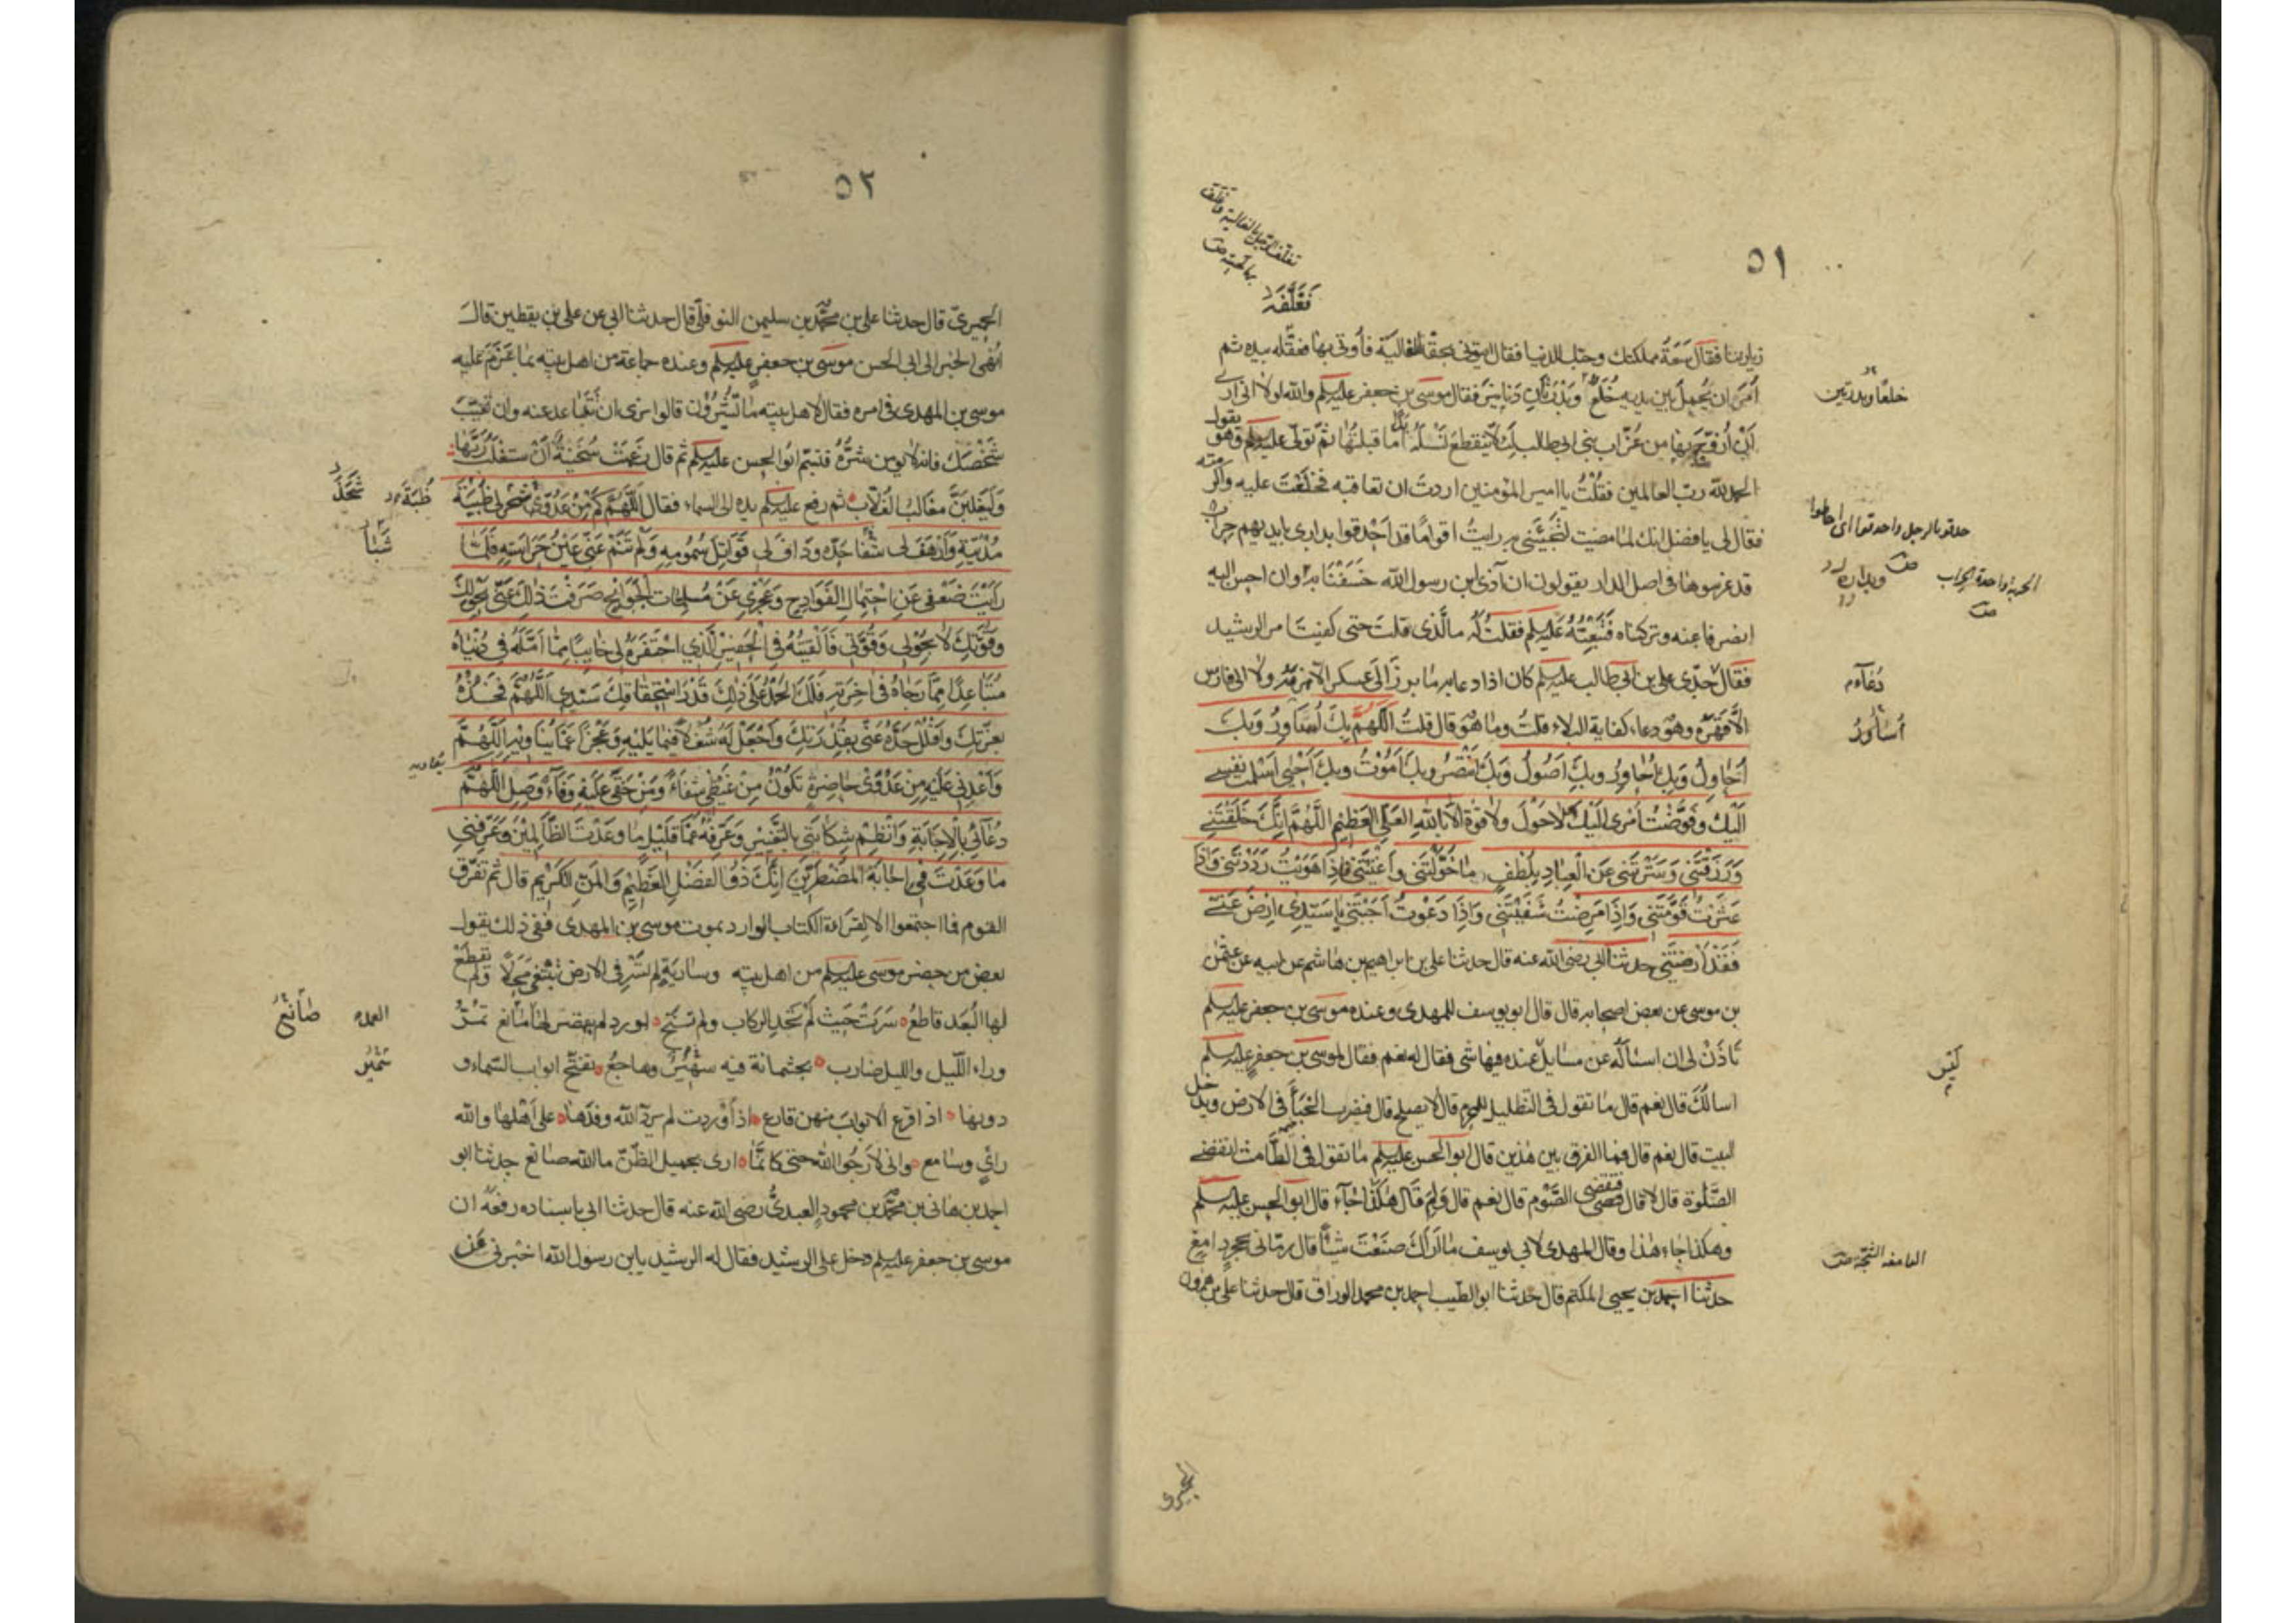 ٥١
فغلّفه
زيارتنا فقال سعة مملكتك وحبّك للدنيا فقال ايتوني بحقّة الغالية فأوتي بها فغلّفه بيده ثم
أمر ان يُحمل بين يديه خُلَعٌ وبَدْرتان دنانير فقال موسى بن جعفر عليه السلم والله لولا اني ارى
أن أزوّج بها من عُزّاب بني ابي طالب لئلا ينقطع نسله أبدا ما قبلتُها ثم تولّى عليه السلم وهو يقول
الحمد لله رب العالمين فقلتُ يا امير المؤمنين اردت ان تعاقبه فخلعت عليه واكرمته
فقال لي يا فضل انك لما مضيت لتجيئني به رايتُ اقواما قد احدقوا بداري بايديهم حراب
قد غرسوها في اصل الدار يقولون ان آذى ابن رسول الله خسفنا به وان احسن اليه
انصرفنا عنه وتركناه فتبعتُه عليه السلم فقلت له ما الذي قلت حتى كفيت امر الرشيد
فقال دعاء جدّي علي بن ابي طالب عليه السلم كان اذا دعا به ما برز الى عسكر الّا هزمه ولا الى فارس
الّا قهره وهو دعاء كفاية البلاء قلتُ وما هو قال قلتُ اللّهم بك أساور وبك
أحاول وبك أحاور وبك أصول وبك أنتصر وبك أموت وبك أحيى أسلمت نفسي
اليك وفوّضت أمري اليك لا حول ولا قوة الا بالله العلي العظيم اللّهم انك خلقتني
ورزقتني وسترتني عن العباد بلطف ما خوّلتني وأغنيتني فاذا هويت رددتني واذا
عثرت قوّمتني واذا مرضت شفيتني واذا دعوت أجبتني يا سيدي ارض عني
فقد أرضيتني حدثنا ابي رضي الله عنه قال حدثنا علي بن ابراهيم بن هاشم عن ابيه عن عثمن
بن موسى عن بعض اصحابه قال قال ابو يوسف للمهدي وعنده موسى بن جعفر عليه السلم
تأذن لي ان اسئله عن مسايل عنده فيها شي فقال له نعم فقال لموسى بن جعفر عليه السلم
اسالك قال نعم قال ما تقول في التظليل للمحرم قال لا يصلح قال فيضرب الخباء في الارض ويدخل
البيت قال نعم قال فما الفرق بين هذين قال ابو الحسن عليه السلم ما تقول في الطامث اتقضي
الصلوة قال لا قال فتقضي الصوم قال نعم قال ولم قال هكذا جاء قال ابو الحسن عليه السلم
وهكذا جاء هذا وقال المهدي لابي يوسف ما اراك صنعت شيئا قال رماني بحجر دامغ
حدثنا احمد بن يحيى المكتب قال حدثنا ابو الطيب احمد بن محمد الوراق قال حدثنا علي بن هرون
خلعًا وبدرتين
حدقوا بالرجل واحدقوا اي احاطوا
الحربة واحدة الحراب
دعاء
أساور
الدامغه الشجّه
الحميري
٥٢
الحميري قال حدثنا علي بن محمد بن سليمن النوفلي قال حدثنا ابي عن علي بن يقطين قال
انهي الخبر الى ابي الحسن موسى بن جعفر عليه السلم وعنده جماعة من اهل بيته بما عزم عليه
موسى بن المهدي في امره فقال لاهل بيته ما تشيرون قالوا نرى ان تتباعد عنه وان تغيّب
شخصك فانه لا يؤمن شرّه فتبسم ابو الحسن عليه السلم ثم قال زعمت سخينة أن ستغلب ربّها
وليغلبنّ مغالب الغلّاب ثم رفع عليه السلم يده الى السماء فقال اللّهم كم من عدوّ شحذ لي ظبة
مديته وأرهف لي شبا حدّه وداف لي قواتل سمومه ولم تنم عنّي عين حراسته فلمّا
رأيت ضعفي عن احتمال الفوادح وعجزي عن ملمّات الجوايح صرفت ذلك عنّي بحولك
وقوّتك لا بحولي وقوّتي فألقيته في الحفير الّذي احتفره لي خايبا ممّا أمّله في دنياه
متباعدا ممّا رجاه في اخرته فلك الحمد على ذلك قدر استحقاقك سيدي اللّهم فخذه
بعزّتك وافلل حدّه عنّي بقدرتك واجعل له شغلا فيما يليه وعجزا عمّا يناويه اللّهم
وأعدني عليه من عدوى حاضرة تكون من غيظي شفاء ومن حقّي عليه وفاء وصل اللّهم
دعائي بالاجابة وانظم شكايتي بالتغيير وعرّفه عمّا قليل ما وعدت الظالمين وعرّفني
ما وعدت في اجابة المضطرين انك ذو الفضل العظيم والمن الكريم قال ثم تفرّق
القوم فما اجتمعوا الا لقراءة الكتاب الوارد بموت موسى بن المهدي ففي ذلك يقول
بعض من حضر موسى عليه السلم من اهل بيته وسارية لم تسر في الارض تبتغي محلا ولم تقطع
لها البعد قاطع سرت حيث لم تحد الركاب ولم تنخ لورد ولم يقصر لها مانع تمرّ
وراء اللّيل والليل ضارب بجثمانه فيه سمير وهاجع تفتّح ابواب السماء و
دونها اذا قرع الابواب منهن قارع اذا أوردت لم يردّ الله وفدها على أهلها والله
رائي وسامع واني لارجو الله حتى كانما ارى بجميل الظنّ ما الله صانع حدثنا ابو
احمد بن هاني بن محمد بن محمود العبدي رضي الله عنه قال حدثنا ابي باسناده رفعه ان
موسى بن جعفر عليه السلم دخل على الرشيد فقال له الرشيد يابن رسول الله اخبرني عن
ظُبَةَ
شحذ
شبا
صانع
العبد
سمير